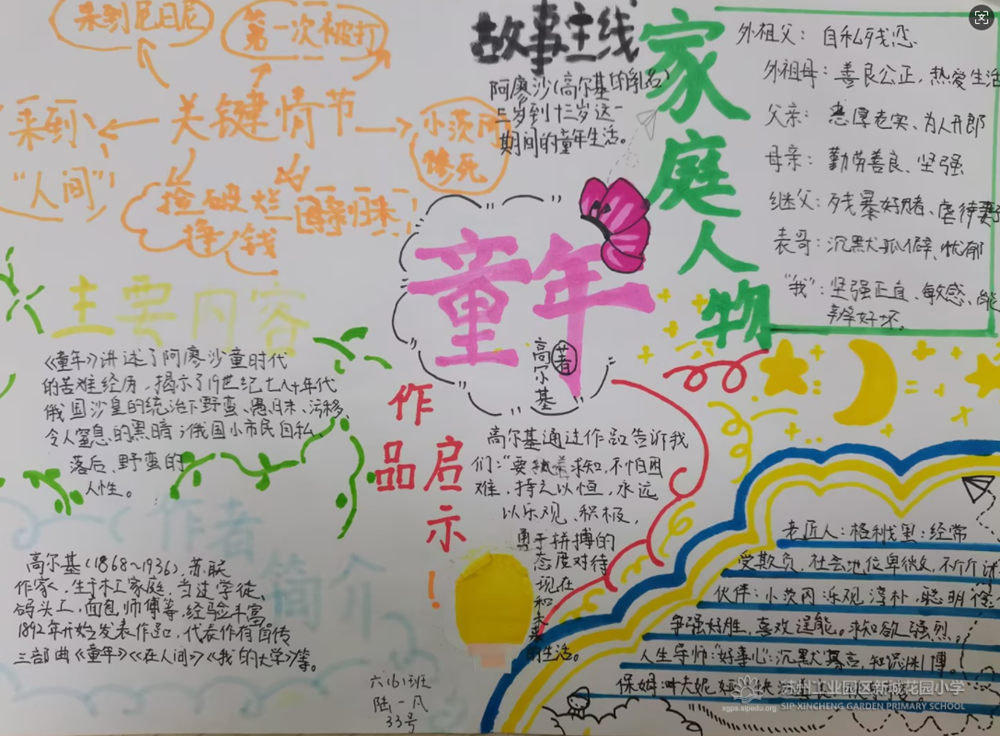 来到尼日尼
第一次被打
来到
关键情节
小茨冈
惨死
“人间”
捡破烂
挣钱
母亲归来
故事主线
阿廖沙(高尔基的乳名)
三岁到十三岁这一
期间的童年生活。
家庭人物
外祖父：自私残忍
外祖母：善良公正，热爱生活
父亲：忠厚老实、为人开朗
母亲：勤劳善良、坚强
继父：残暴好赌、虐待妻子
表哥：沉默孤僻、忧郁
“我”：坚强正直、敏感、能
辛辛好坏。
童年
高尔基
著
主要内容
《童年》讲述了阿廖沙童时代
的苦难经历，揭示了19世纪七八十年代
俄国沙皇的统治下野蛮、愚昧、污秽、
令人窒息的黑暗；俄国小市民自私
落后、野蛮的
人性。
作品启示！
高尔基通过作品告诉我
们：“要执着求知，不怕困
难，持之以恒，永远
以乐观、积极，
勇于拼搏的
态度对待
现在
和
未来
的生活。
作者简介
高尔基(1868~1936)，苏联
作家，生于木工家庭，当过学徒、
码头工，面包师傅等，经验丰富
1892年开始发表作品，代表作有自传
三部曲《童年》《在人间》《我的大学》等。
六(6)班
陆一凡
33号
老匠人：格利戈里：经常
受欺负，社会地位卑微，不
伙伴：小茨冈：乐观、淳朴、聪明
争强好胜，喜欢逞能。求知欲强烈。
人生导师“好事心”：沉默寡言，知识渊博。
保姆：叶夫妮
苏州工业园区新城花园小学
xgps.sipedu.org
SIP XINCHENG GARDEN PRIMARY SCHOOL